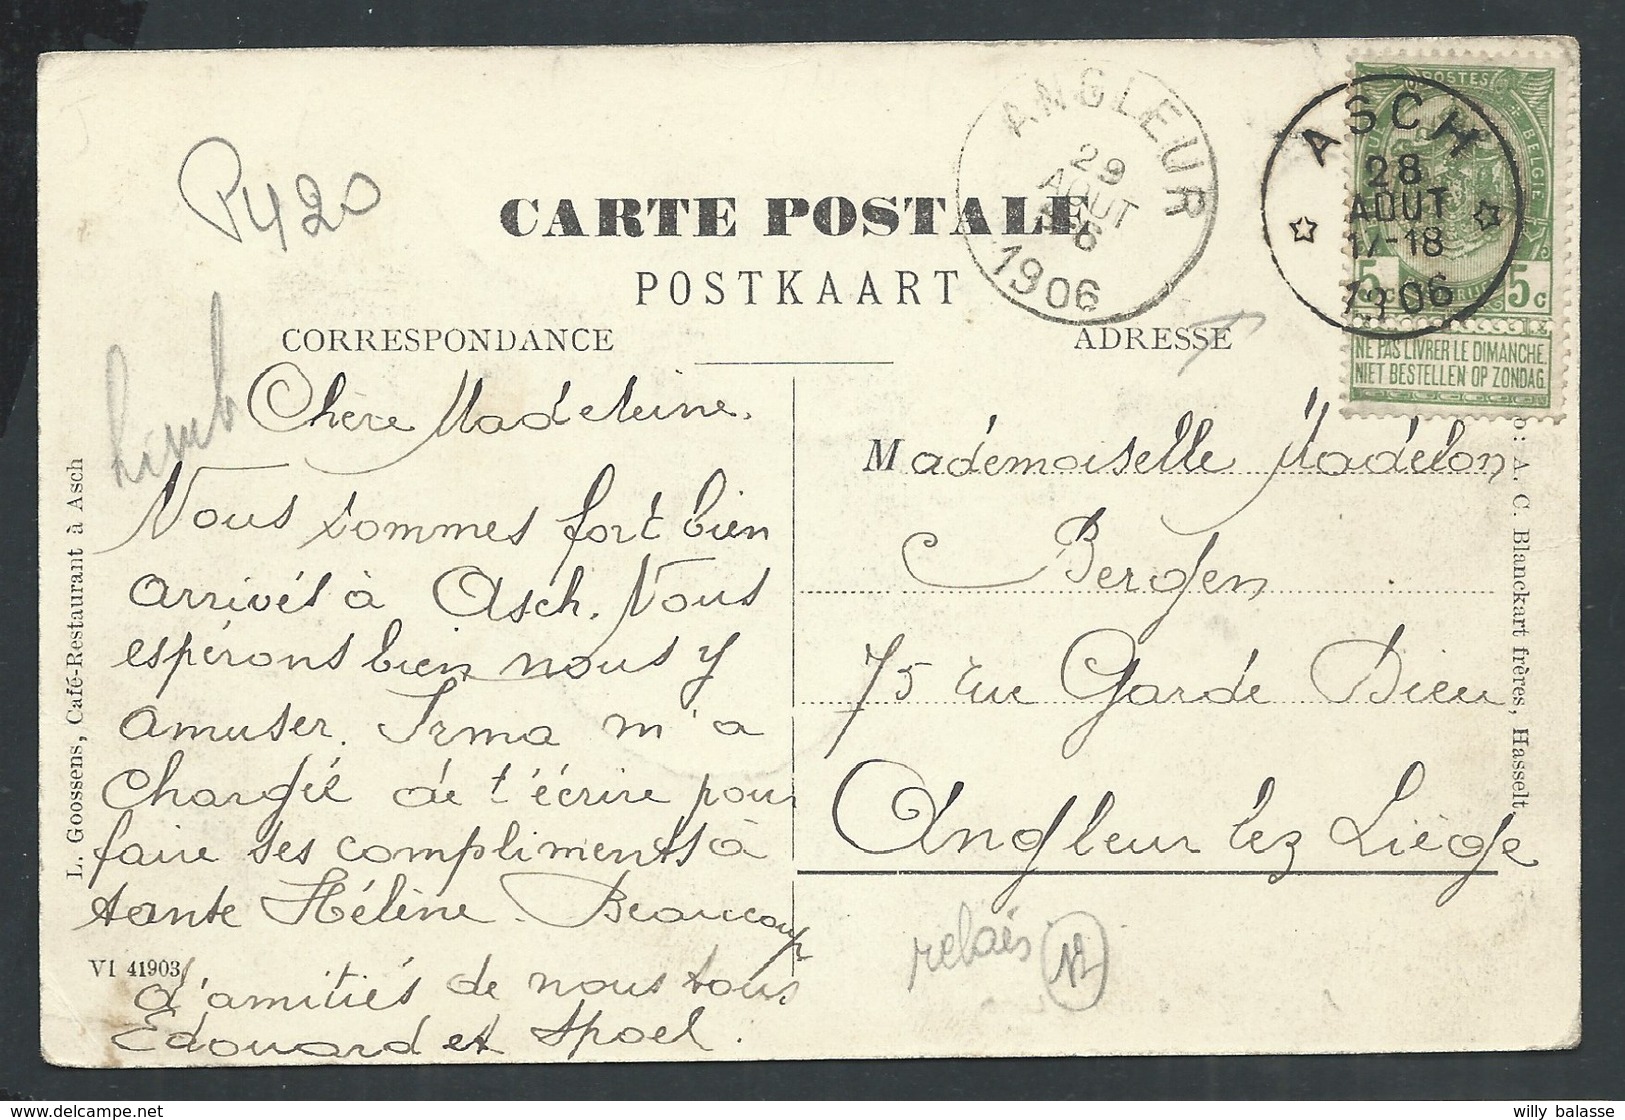 P420
limb
CARTE POSTALE
POSTKAART
CORRESPONDANCE
ADRESSE
ANGLEUR
29
AOUT
6
1906
ASCH
28
AOUT
17-18
1906
POSTES
5c
5c
NE PAS LIVRER LE DIMANCHE.
NIET BESTELLEN OP ZONDAG.
Chère Madeleine.
Nous sommes fort bien
arrivés à Asch. Nous
espérons bien nous y
amuser. Irma m'a
chargée de t'écrire pour
faire ses compliments à
tante Hélène. Beaucoup
d'amitiés de nous tous
Edouard et
VI 41903
L. Goossens, Café-Restaurant à Asch
Mademoiselle Madelon
Bergen
75 rue Garde Dieu
Angleur lez Liège
relais
A. C. Blanckart frères, Hasselt
willy balasse